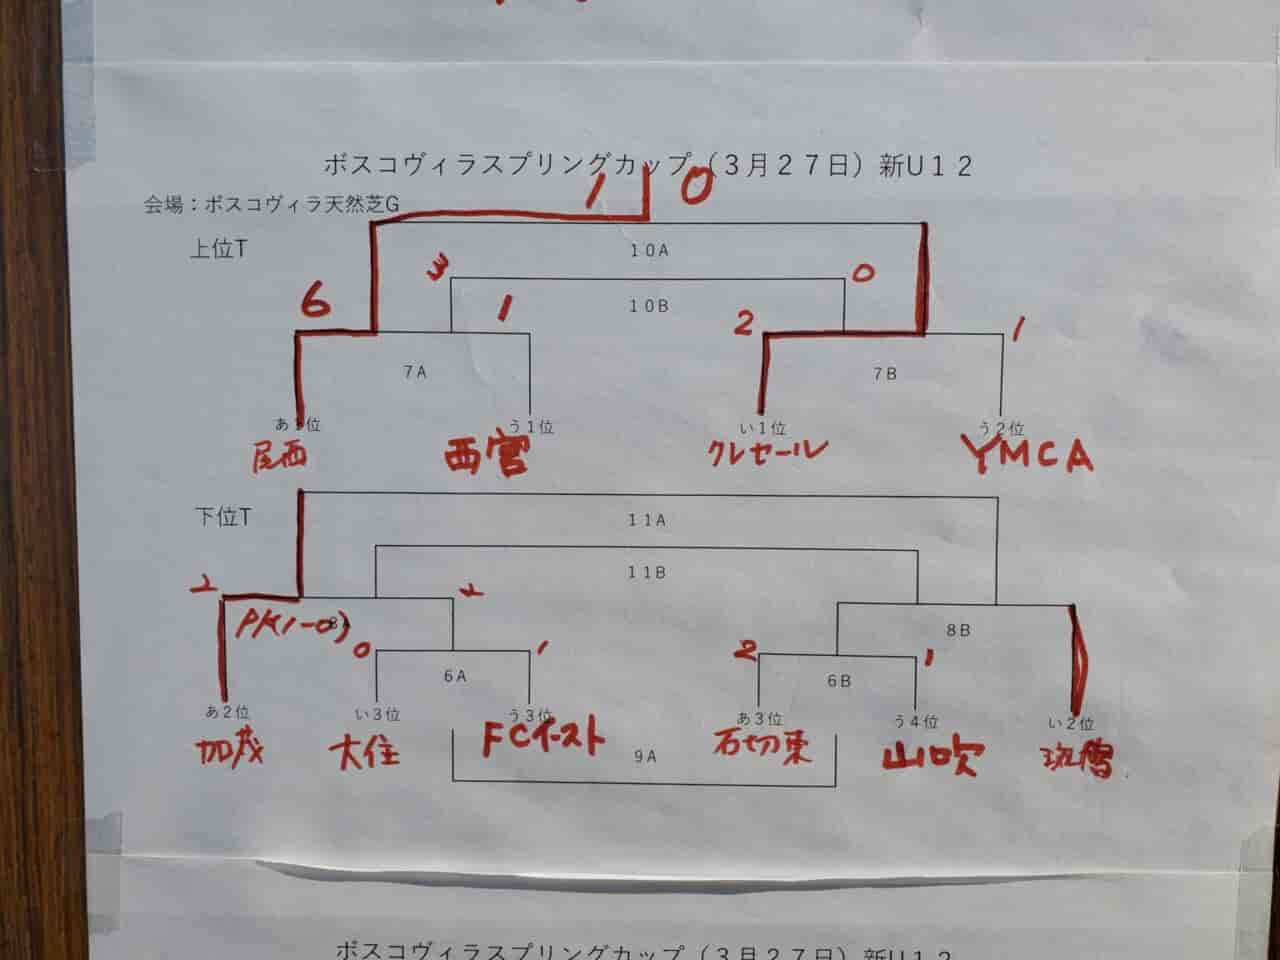 ボスコヴィラスプリングカップ（３月２７日）新U１２
1 0
会場：ボスコヴィラ天然芝G
上位T
１０A
3 0
１０B
6 1 2 1
７A ７B
あ1位 う１位 い１位 う２位
尾西 西宮 クレセール YMCA
下位T
１１A
１１B
2 2
PK(1-0) 8A ８B
0 1 2 1
６A ６B
あ２位 い３位 う３位 あ３位 う４位 い２位
加茂 大住 FCイースト 石切東 山吹
９A
ボスコヴィラスプリングカップ（３月２７日）新U１２